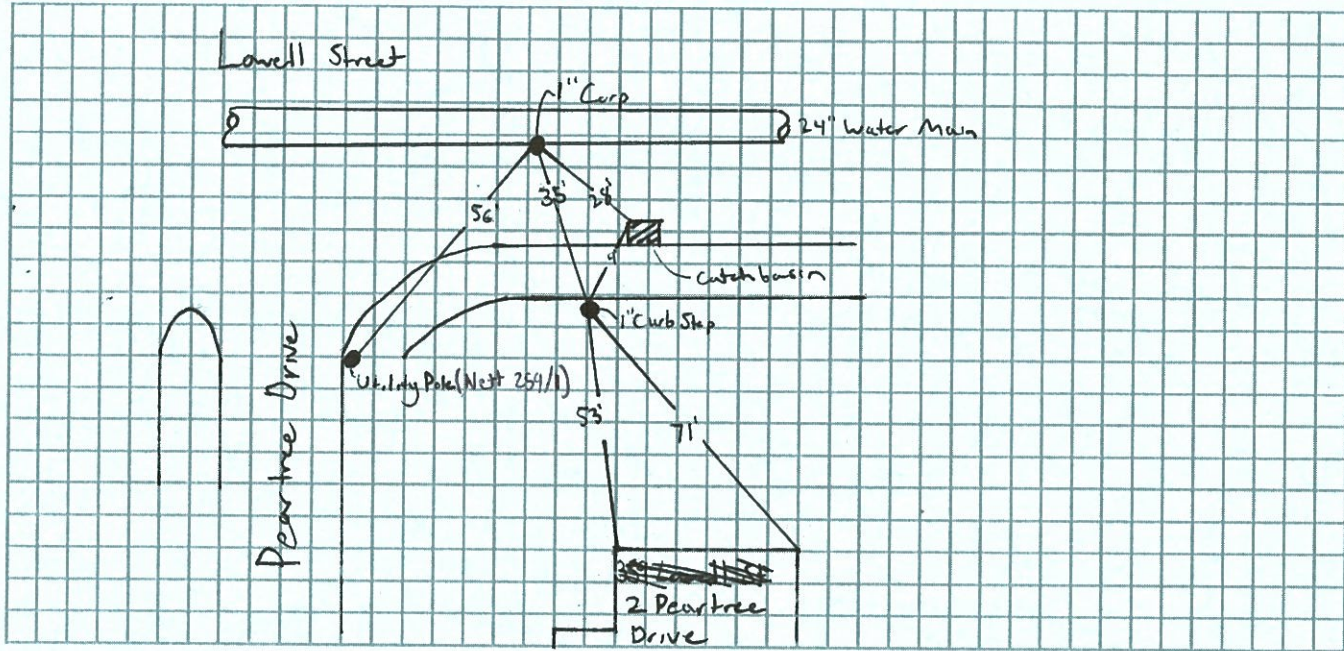 Lowell Street
1" Corp
24" Water Main
56'
35'
28'
Catch basin
1" Curb Stop
Utility Pole (Nett 254/1)
Peartree Drive
53'
71'
2 Peartree
Drive